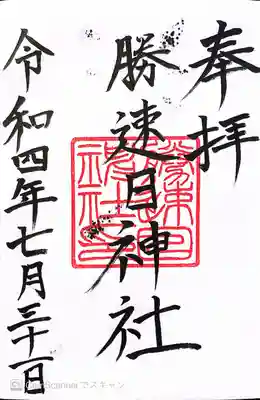 奉拝
勝速日神社
令和四年七月三十一日
CamScanner でスキャン